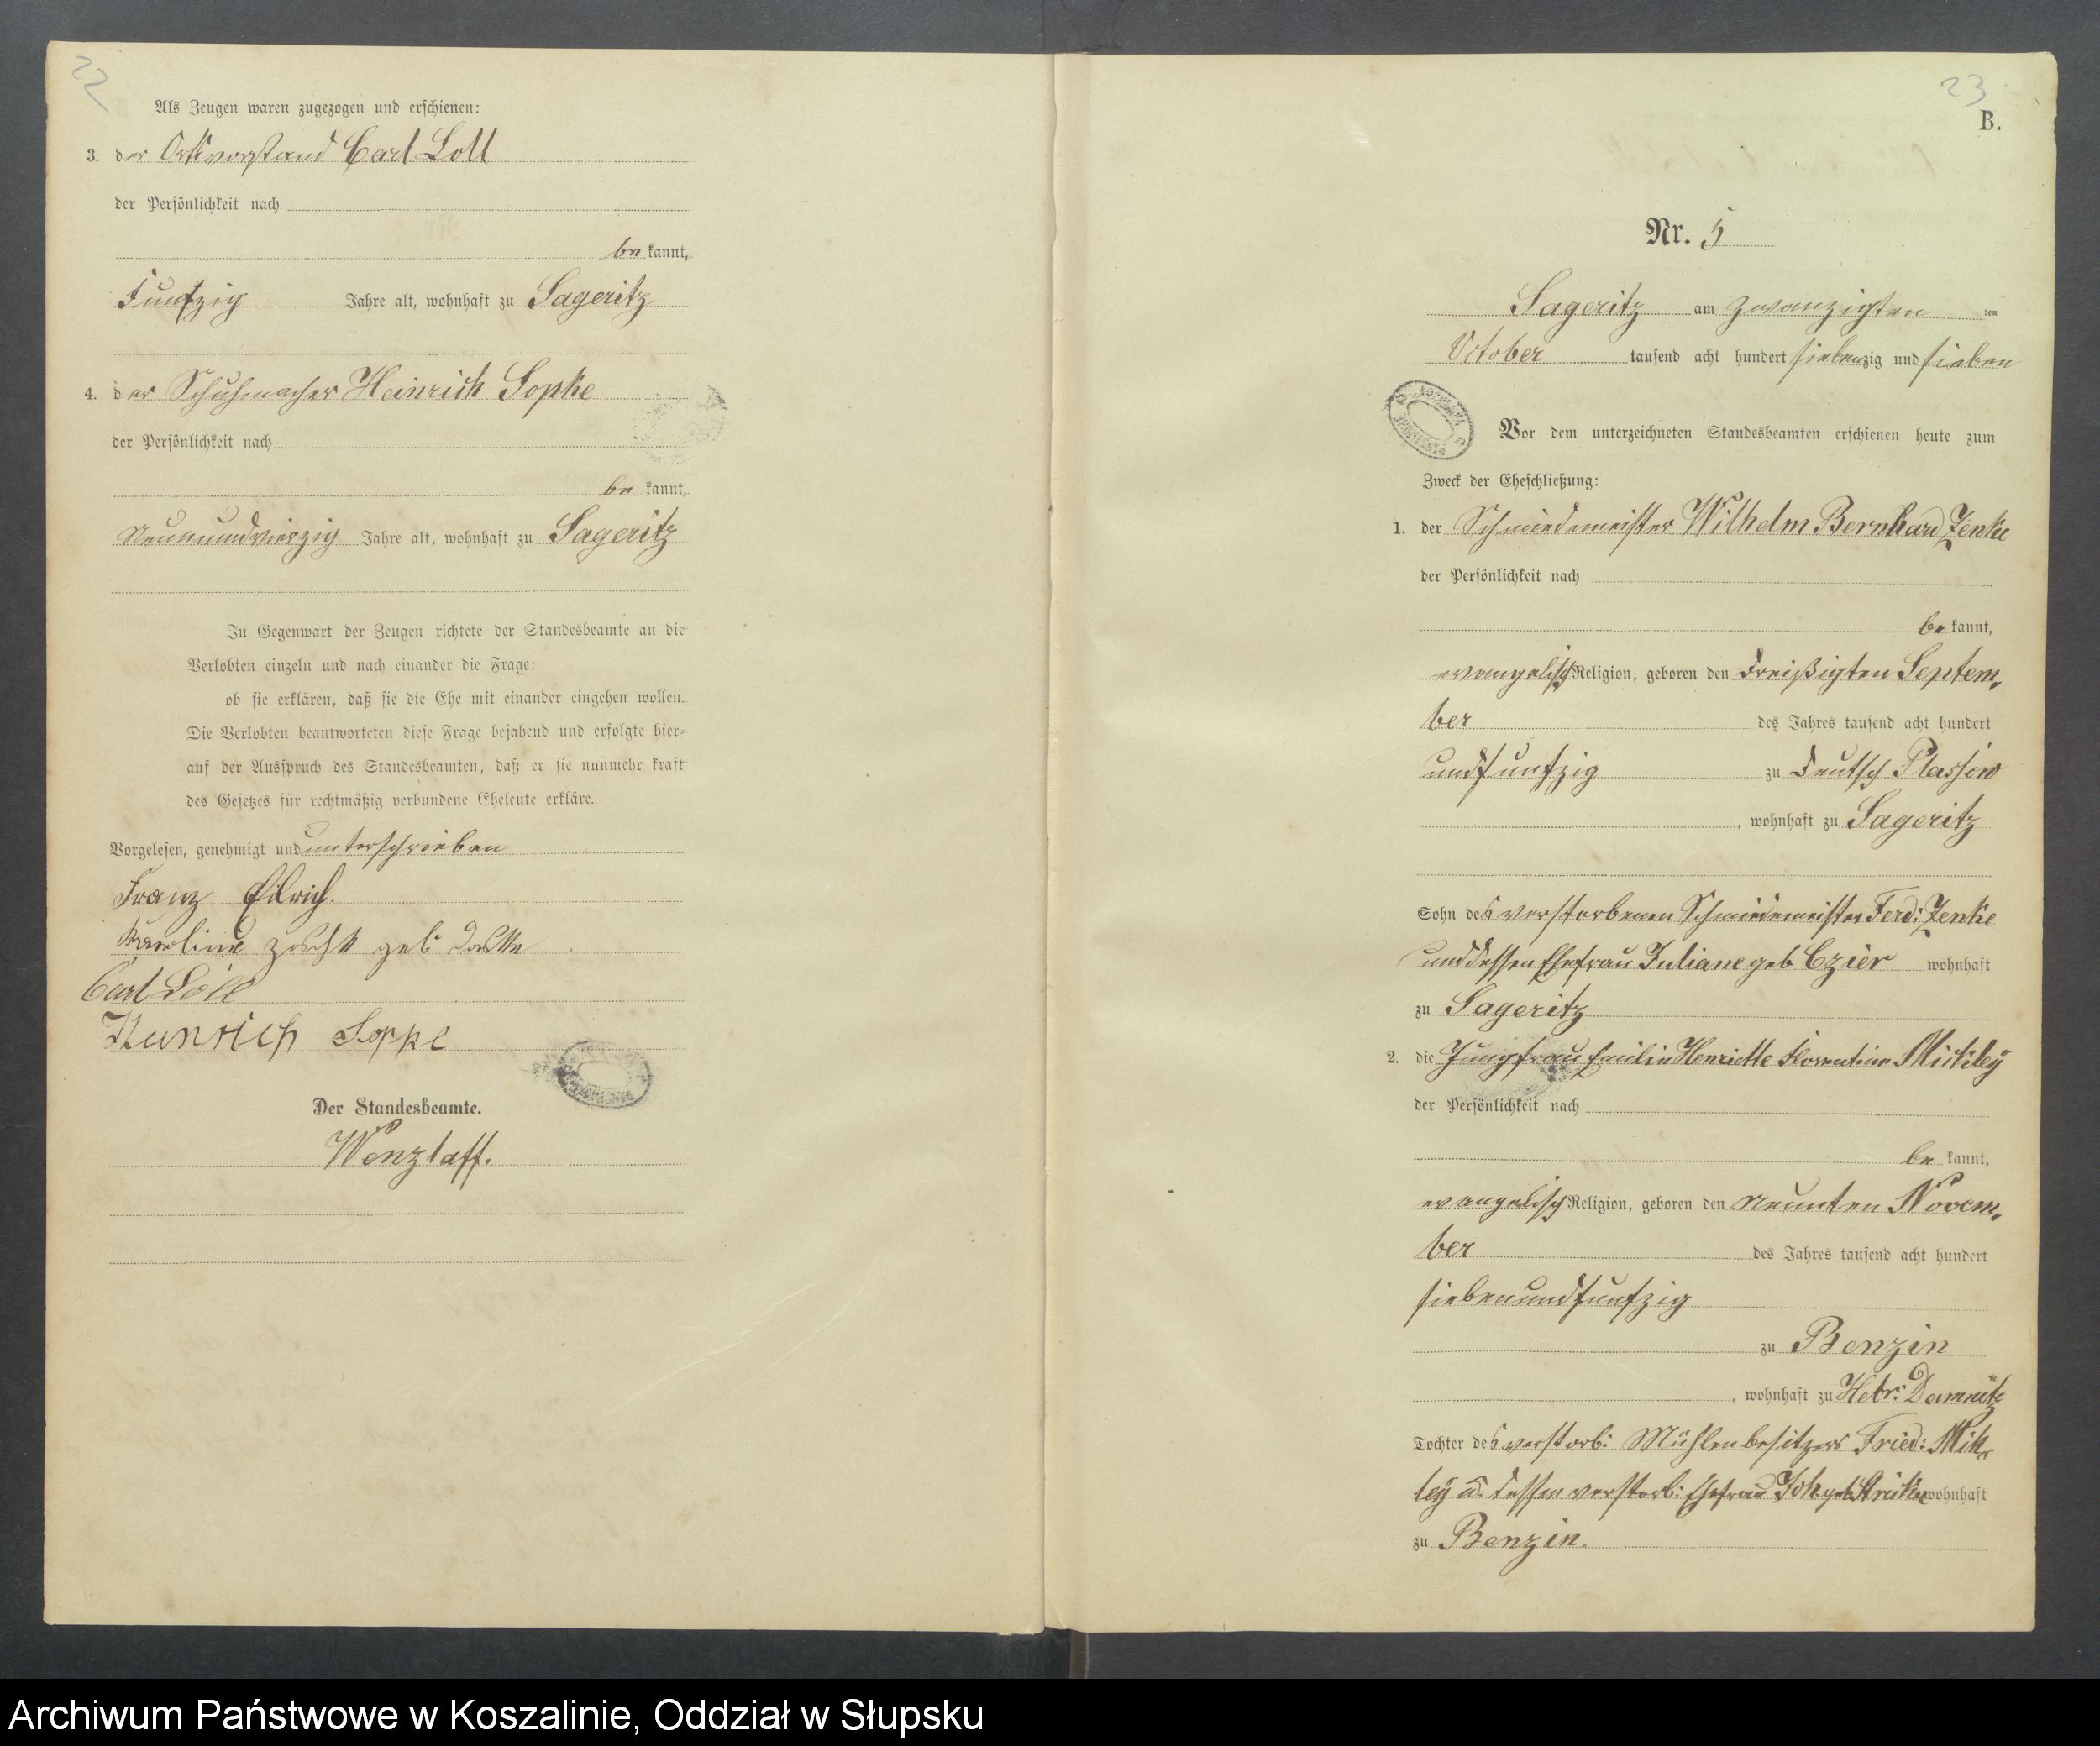 22
Als Zeugen waren zugezogen und erschienen:
3. der Ortsvorstand Carl Loll
der Persönlichkeit nach
be kannt,
Funfzig Jahre alt, wohnhaft zu Sageritz
4. der Schuhmacher Heinrich Sopke
der Persönlichkeit nach
be kannt,
Neunundvierzig Jahre alt, wohnhaft zu Sageritz
In Gegenwart der Zeugen richtete der Standesbeamte an die
Verlobten einzeln und nach einander die Frage:
ob sie erklären, daß sie die Ehe mit einander eingehen wollen.
Die Verlobten beantworteten diese Frage bejahend und erfolgte hier-
auf der Ausspruch des Standesbeamten, daß er sie nunmehr kraft
des Gesetzes für rechtmäßig verbundene Eheleute erkläre.
Vorgelesen, genehmigt und unterschrieben
Franz Eilrich.
Karoline geb:
Carl Loll
Heinrich Soppe
Der Standesbeamte.
Wenzlaff.
23
B.
Nr. 5
Sageritz am zwanzigten ten
October tausend acht hundert siebenzig und sieben
Vor dem unterzeichneten Standesbeamten erschienen heute zum
Zweck der Eheschließung:
1. der Schmiedemeister Wilhelm Bernhard Zenke
der Persönlichkeit nach
be kannt,
evangelisch Religion, geboren den Dreißigten Septem-
ber des Jahres tausend acht hundert
undfunfzig zu Deutsch Plassow
, wohnhaft zu Sageritz
Sohn des verstorbenen Schmiedemeister Ferd: Zenke
und dessen Ehefrau Juliane geb Czier wohnhaft
zu Sageritz
2. die Jungfrau Emilie Henriette Florentine Mickley
der Persönlichkeit nach
be kannt,
evangelisch Religion, geboren den Neunten Novem-
ber des Jahres tausend acht hundert
siebenundfunfzig
zu Benzin
, wohnhaft zu Hebr: Damnitz
Tochter des verstorb: Mühlenbesitzers Fried: Mik-
ley u. dessen verstorb: Ehefrau Joh geb wohnhaft
zu Benzin.
Archiwum Państwowe w Koszalinie, Oddział w Słupsku